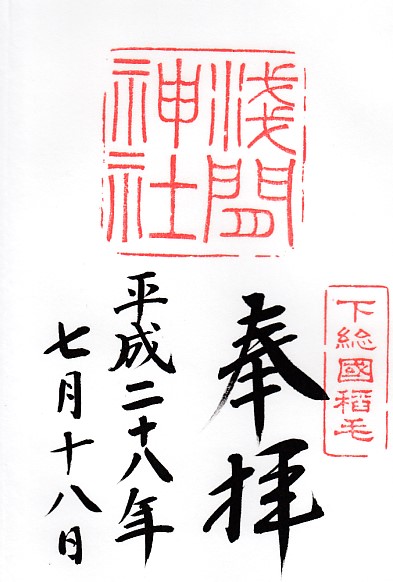 下総國稻毛
奉拝
淺間
神社
平成二十八年
七月十八日